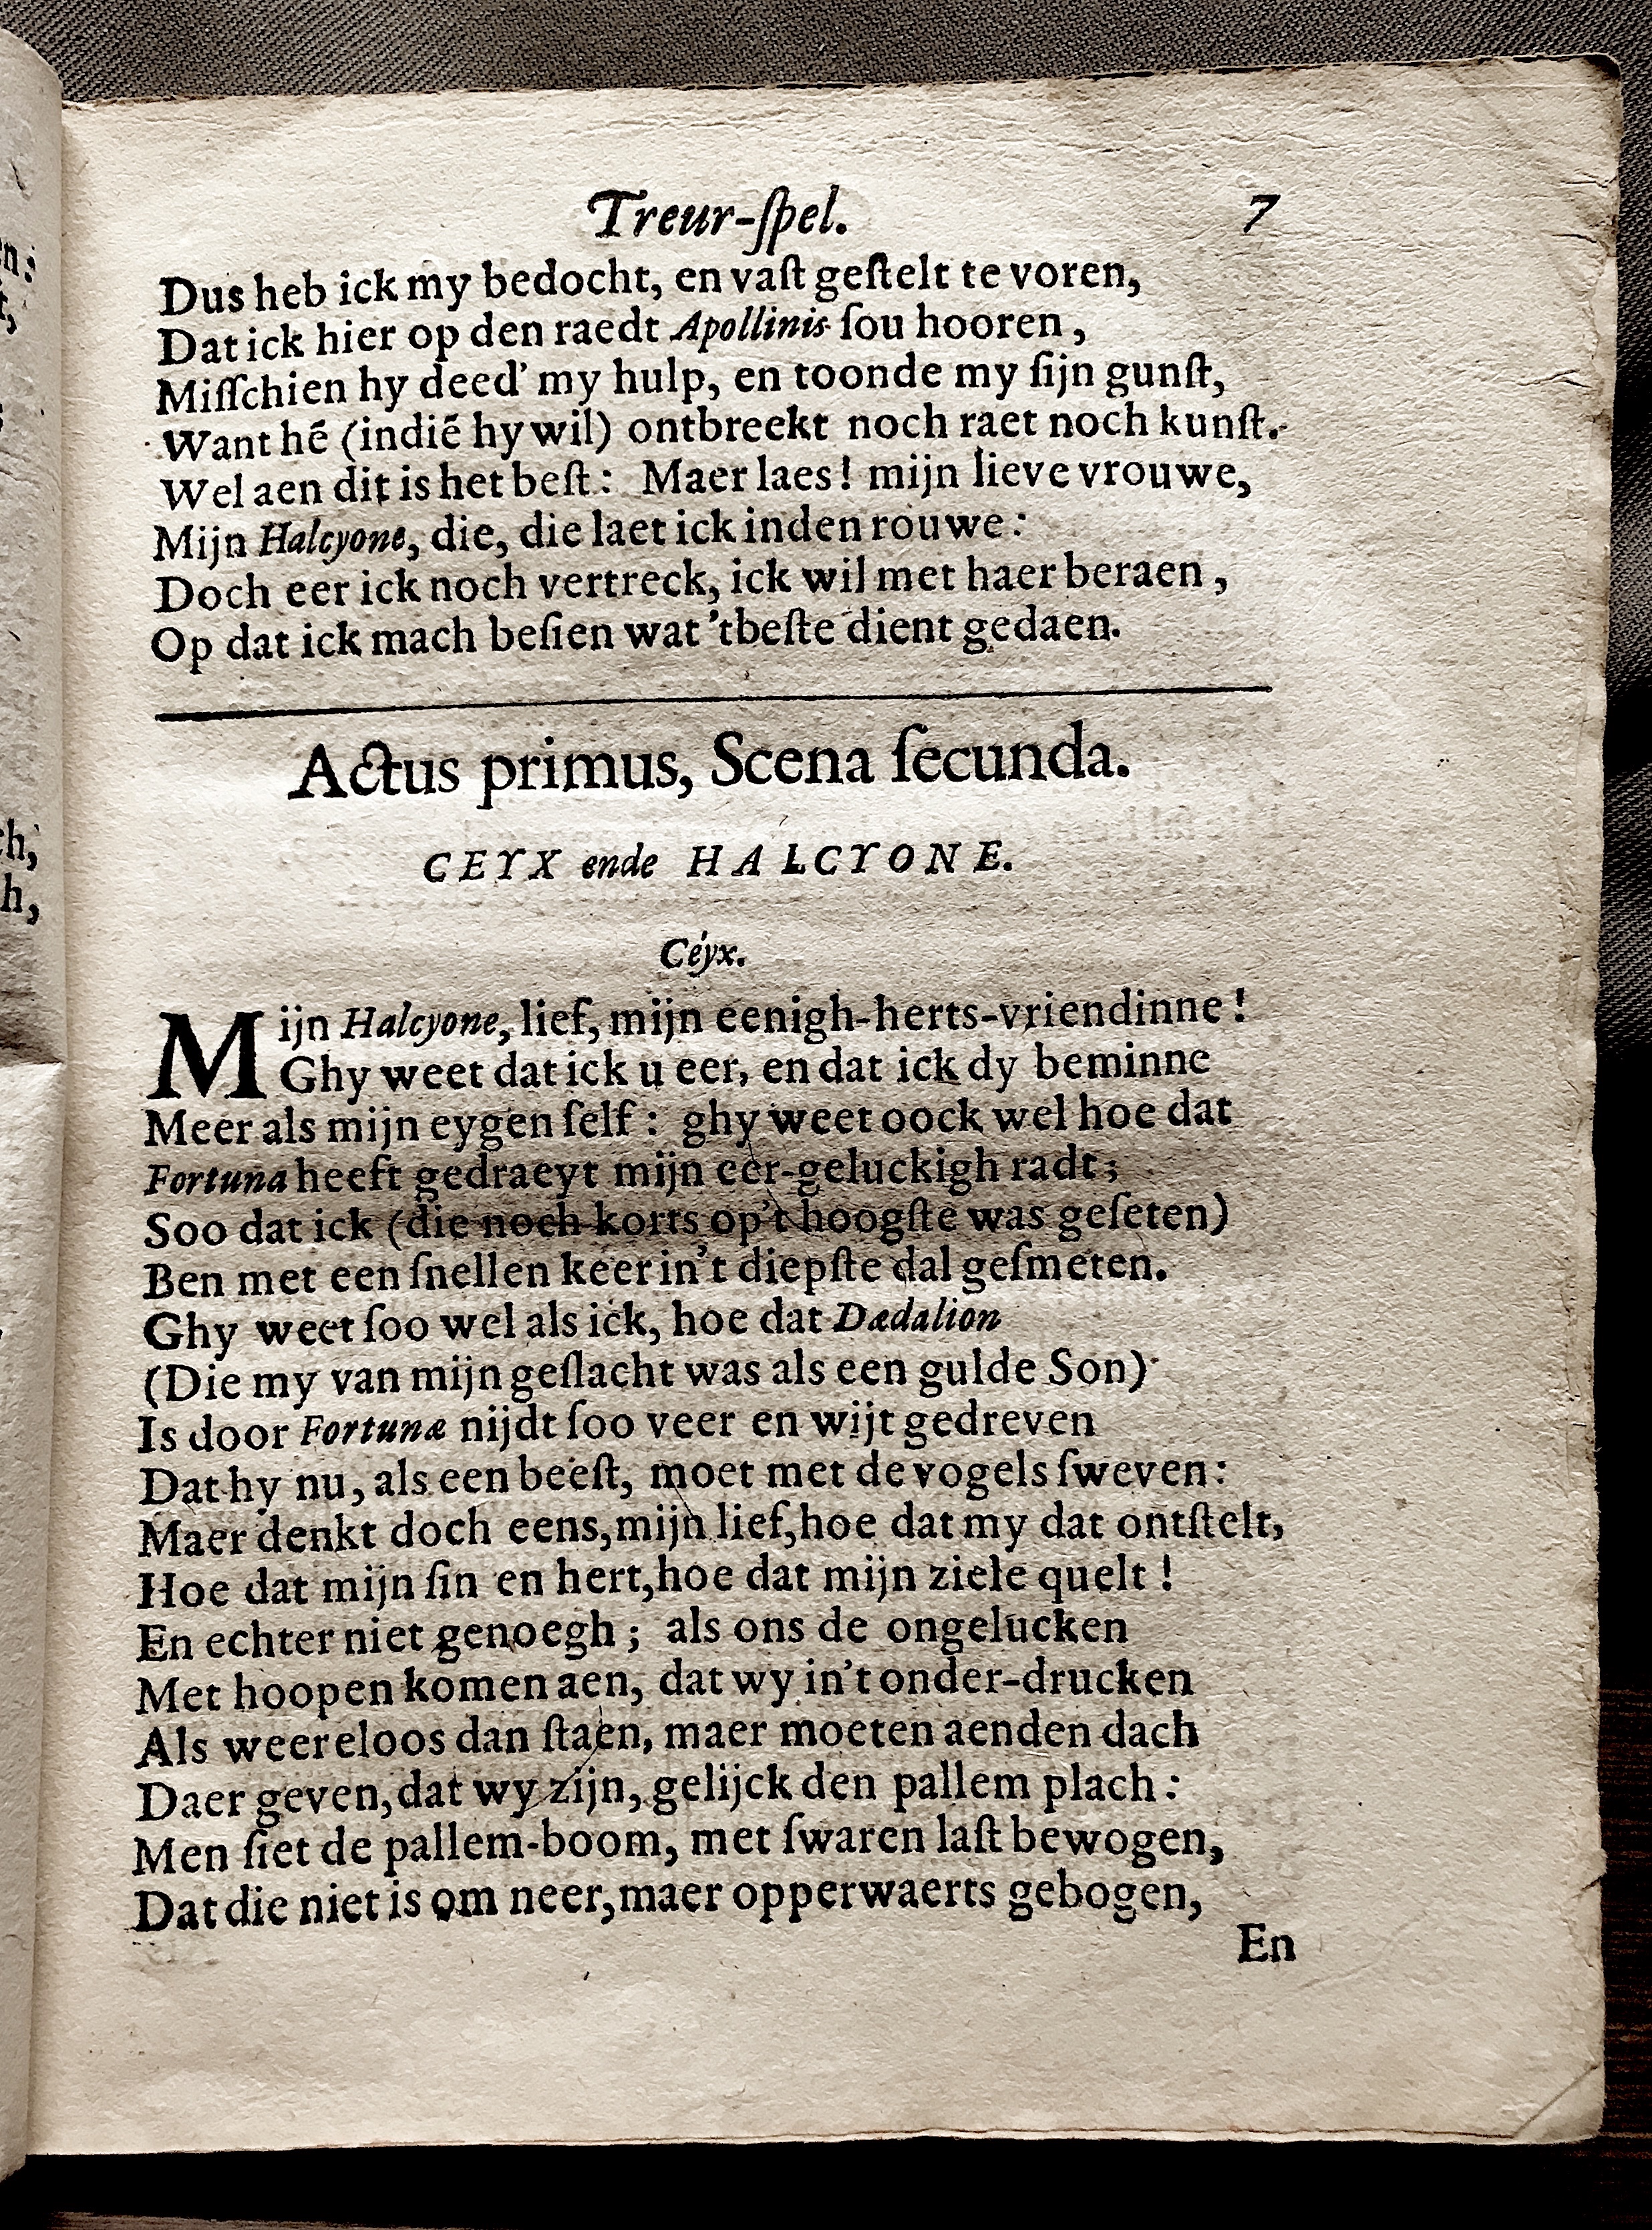 Treur-ſpel. 7
Dus heb ick my bedocht, en vaſt geſtelt te voren,
Dat ick hier op den raedt Apollinis ſou hooren,
Miſſchien hy deed' my hulp, en toonde my ſijn gunſt,
Want hē (indiē hy wil) ontbreekt noch raet noch kunſt.
Wel aen dit is het beſt: Maer laes! mijn lieve vrouwe,
Mijn Halcyone, die, die laet ick inden rouwe:
Doch eer ick noch vertreck, ick wil met haer beraen,
Op dat ick mach beſien wat 'tbeſte dient gedaen.
Actus primus, Scena ſecunda.
CEYX ende HALCYONE.
Céyx.
Mijn Halcyone, lief, mijn eenigh-herts-vriendinne!
Ghy weet dat ick u eer, en dat ick dy beminne
Meer als mijn eygen ſelf: ghy weet oock wel hoe dat
Fortuna heeft gedraeyt mijn eer-geluckigh radt;
Soo dat ick (die noch korts op't hoogſte was geſeten)
Ben met een ſnellen keer in't diepſte dal geſmeten.
Ghy weet ſoo wel als ick, hoe dat Dædalion
(Die my van mijn geſlacht was als een gulde Son)
Is door Fortunæ nijdt ſoo veer en wijt gedreven
Dat hy nu, als een beeſt, moet met de vogels ſweven:
Maer denkt doch eens, mijn lief, hoe dat my dat ontſtelt,
Hoe dat mijn ſin en hert, hoe dat mijn ziele quelt!
En echter niet genoegh; als ons de ongelucken
Met hoopen komen aen, dat wy in't onder-drucken
Als weereloos dan ſtaen, maer moeten aenden dach
Daer geven, dat wy zijn, gelijck den pallem plach:
Men ſiet de pallem-boom, met ſwaren laſt bewogen,
Dat die niet is om neer, maer opperwaerts gebogen,
En